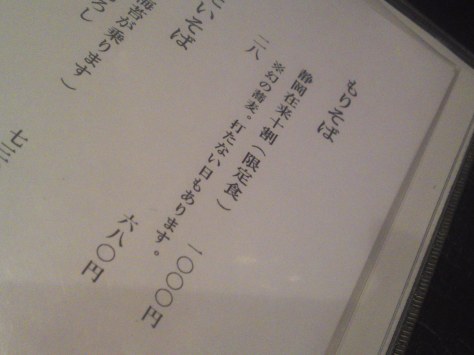 もりそば
静岡在来十割（限定食） 一〇〇〇円
※幻の蕎麦。打たない日もあります。
二八 六八〇円
いそば
海苔が乗ります）
ろし 七三